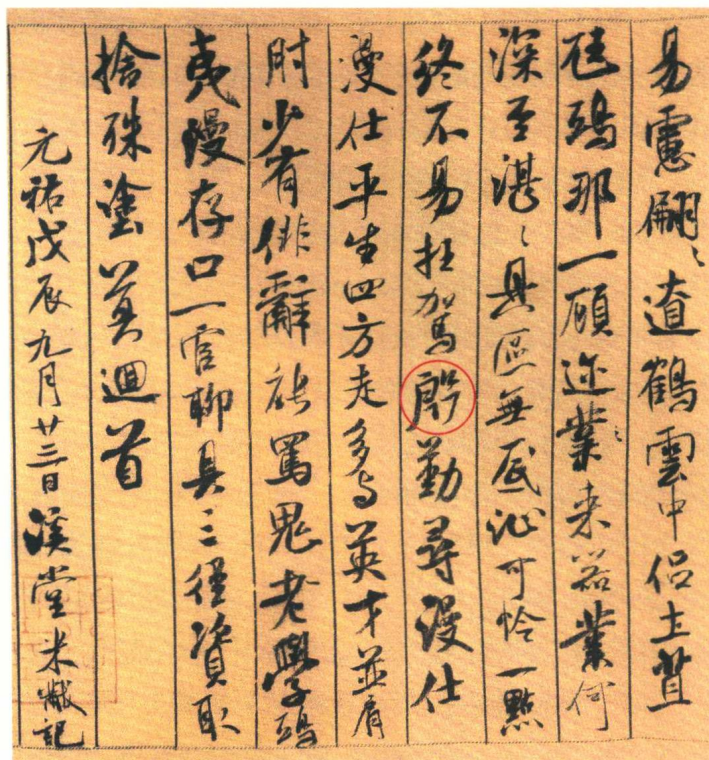 易慮翩〻遼鶴雲中侶土苴
尪鴟那一顧迩業〻来器業何
深至湛〻具區無底沚可怜一點
終不易枉駕殷勤尋漫仕
漫仕平生四方走多与英才並肩
肘少有俳辭能罵鬼老學鴟
夷漫存口一官聊具三徑資取
捨殊塗莫迴首
元祐戊辰九月廿三日溪堂米黻記